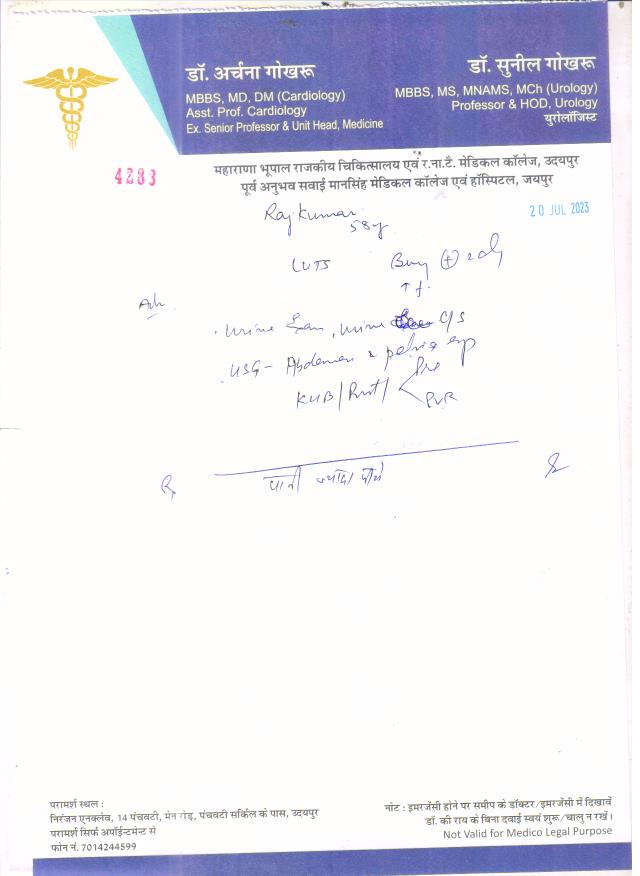 डॉ. अर्चना गोखरू
MBBS, MD, DM (Cardiology)
Asst. Prof. Cardiology
Ex. Senior Professor & Unit Head, Medicine
डॉ. सुनील गोखरू
MBBS, MS, MNAMS, MCh (Urology)
Professor & HOD, Urology
युरोलॉजिस्ट
महाराणा भूपाल राजकीय चिकित्सालय एवं र.ना.टै. मेडिकल कॉलेज, उदयपुर
पूर्व अनुभव सवाई मानसिंह मेडिकल कॉलेज एवं हॉस्पिटल, जयपुर
4283
20 JUL 2023
Rajkumar
58y
LUTS
Adv
Urine Exam, Urine C/S
USG - Abdomen & pelvis
KUB/Prost/ Pre
PVR
Rx
पानी ज्यादा पीवे
परामर्श स्थल :
निरंजन एनक्लेव, 14 पंचवटी, मेन रोड़, पंचवटी सर्किल के पास, उदयपुर
परामर्श सिर्फ अपॉईन्टमेन्ट से
फोन नं. 7014244599
नोट : इमरजेंसी होने पर समीप के डॉक्टर/इमरजेंसी में दिखावें
डॉ. की राय के बिना दवाई स्वयं शुरू/चालु न रखें।
Not Valid for Medico Legal Purpose